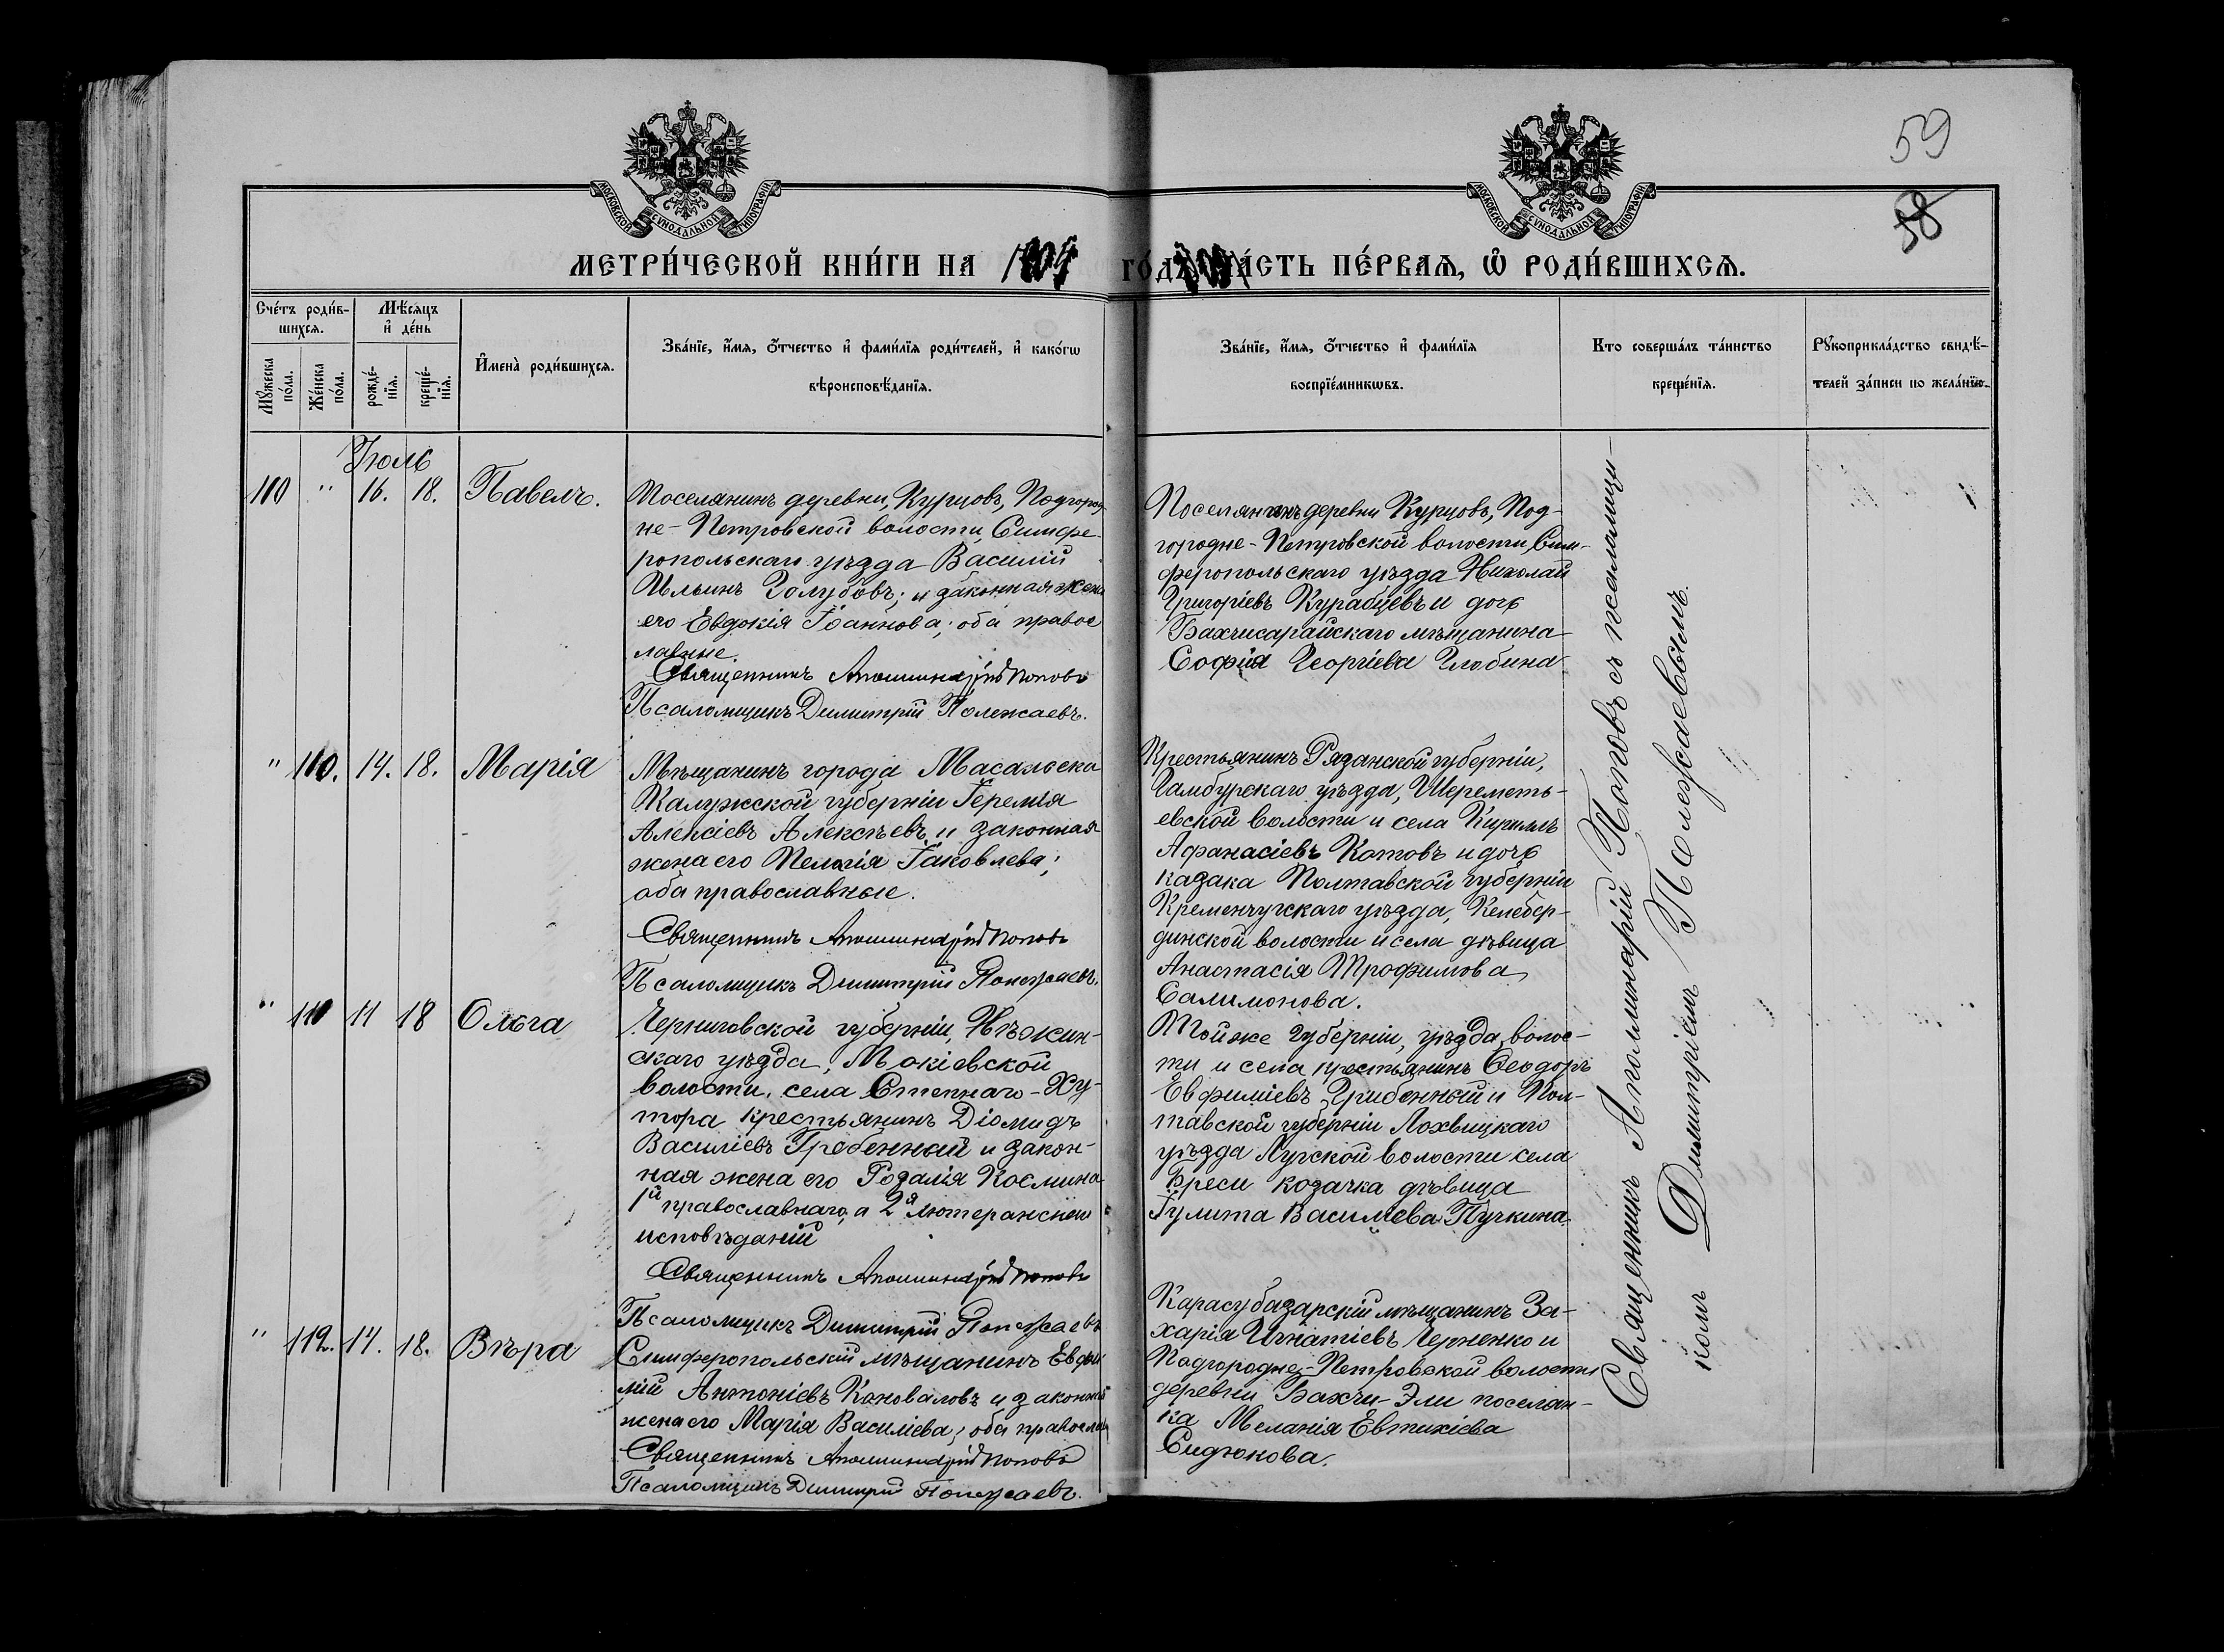 59
58
МОСКОВСКОЙ СѴНОДАЛЬНОЙ ТИПОГРАФІИ
МОСКОВСКОЙ СѴНОДАЛЬНОЙ ТИПОГРАФІИ
МЕТРИ́ЧЕСКОЙ КНИ́ГИ НА
ГО́ДЪ ЧА́СТЬ ПЕ́РВАѦ, Ѡ҆ РОДИ́ВШИХСѦ.
Сче́тъ роди́в-
шихсѧ.
Мѣ́сѧцъ
и҆ де́нь
Мꙋ́жеска
по́ла.
Же́нска
по́ла.
рожде́-
нїѧ.
креще́-
нїѧ.
И҆мена̀ роди́вшихсѧ.
Зва́нїе, и҆́мѧ, ѻ҆́тчество и҆ фами́лїѧ роди́телей, и҆ како́гѡ
вѣроисповѣ́данїѧ.
Зва́нїе, и҆́мѧ, ѻ҆́тчество и҆ фами́лїѧ
воспрїе́мникѡвъ.
Кто соверша́лъ та́инство
креще́нїѧ.
Рꙋкоприкла́дство свидѣ́-
телей за́писи по жела́нїю.
Іюль
110 " 16. 18. Павелъ.
Поселянинъ деревни, Курцовъ, Подгород
не-Петровской волости, Симфе-
ропольскаго уѣзда Василій
Ильинъ Голубовъ; и законная жена
его Евдокія Іоаннова; оба правос
лавные.
Священникъ Аполлинарій Поповъ
Псаломщикъ Димитрій Полежаевъ.
Поселянинъ деревни Курцовъ, Под-
городне-Петровской волости, Сим-
феропольскаго уѣзда Николай
Григоріевъ Курабцевъ и дочь
Бахчисарайскаго мѣщанина
Софія Георгіева Глобина
" 110. 14. 18. Марія
Мѣщанинъ города Масальска
Калужской губерніи Іеремія
Алексіевъ Алексѣевъ и законная
жена его Пелагія Іаковлева;
оба православные.
Священникъ Аполлинарій Поповъ
Псаломщикъ Димитрій Полежаевъ.
Крестьянинъ Рязанской губерніи,
уѣзда, Шереметь-
евской волости и села Кириллъ
Афанасіевъ Котовъ и дочь
казака Полтавской губерніи
Кременчугскаго уѣзда, Келебер-
динской волости и села дѣвица
Анастасія Трофимова
Салимонова.
" 110 11 18 Ольга
Черниговской губерніи, Нѣжин-
скаго уѣзда, Мокіевской
волости, села Степнаго-Ху-
тора крестьянинъ Діомидъ
Василіевъ Гребенный и закон-
ная жена его Розалія Космина
1й православнаго, а 2я лютеранскаго
исповѣданій
Священникъ Аполлинарій Поповъ
Псаломщикъ Димитрій Полежаевъ
Той же губерніи, уѣзда, волос-
ти и села крестьянинъ Ѳеодоръ
Евфиміевъ Грибенный и Пол-
тавской губерніи Лохвицкаго
уѣзда Лучской волости села
Бреси козачка дѣвица
Іулита Василіева Пучкина
" 112. 14. 18. Вѣра
Симферопольскій мѣщанинъ Евфи-
мій Антоніевъ Коноваловъ и законная
жена его Марія Василіева; оба правосла
Священникъ Аполлинарій Поповъ
Псаломщикъ Димитрій Полежаевъ.
Карасубазарскій мѣщанинъ За-
харія Игнатіевъ Черненко и
Подгородне-Петровской волости
деревни Бахчи-Эли поселян-
ка Меланія Евтихіева
Сидюкова.
Священникъ Аполлинарій Поповъ съ псаломщи-
комъ Димитріемъ Полежаевымъ.